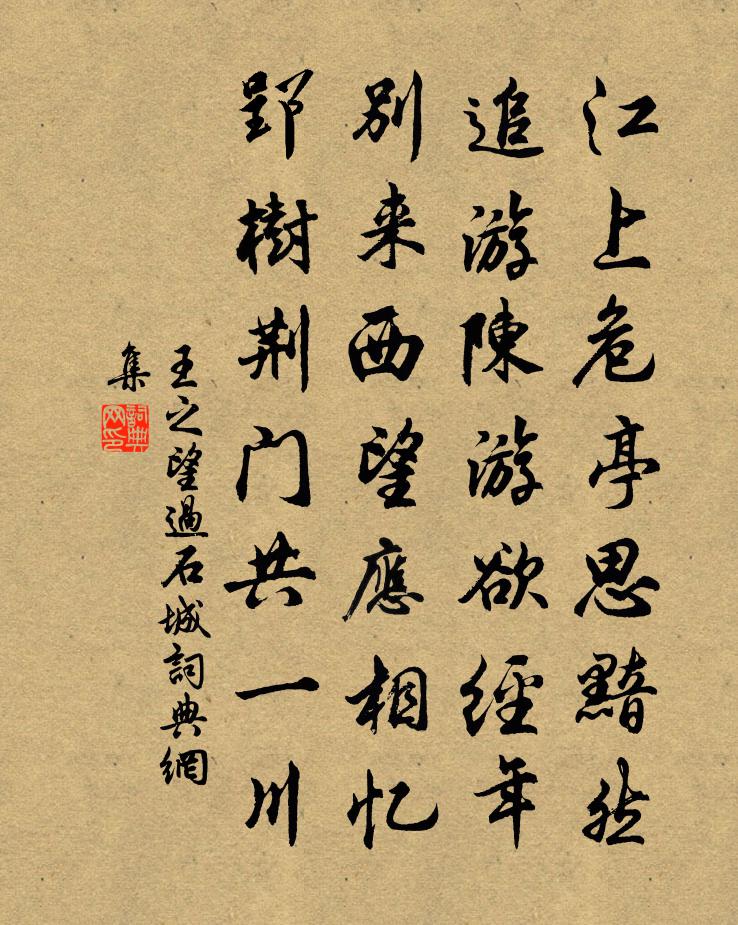 江上危亭思黯然
追游陳游欲經年
別来西望應相忆
郢樹荆门共一川
王之望過石城詞典網
集
詞典
网印